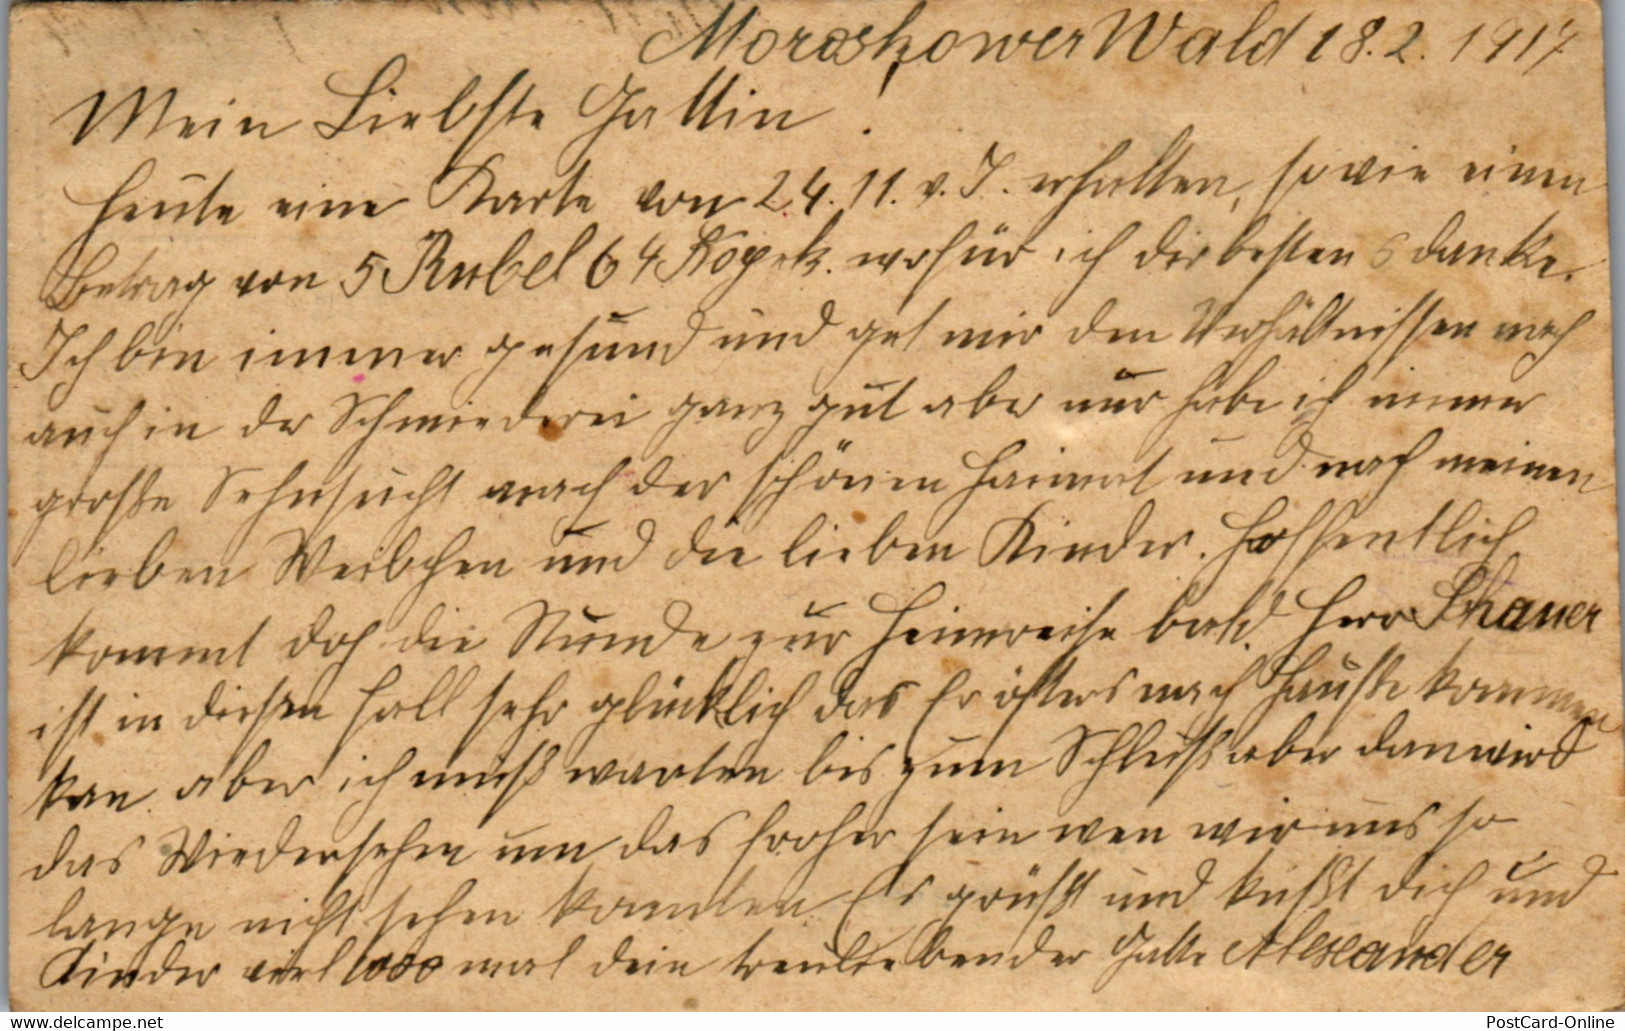 Moroskower Wald 18.2.1917
Mein Liebste Gattin!
Heute eine Karte von 24.11.v.J. erhalten, sowie einen
Betrag von 5 Rubel 64 Kopek. wofür ich dir besten danke.
Ich bin immer gesund und get mir den Verhältnissen nach
auch in der Schmiederei ganz gut aber nur habe ich immer
große Sehnsucht nach der schönen Heimat und nach meinen
lieben Weibchen und die lieben Kinder. Hoffentlich
kommt doch die Stunde zur Heimreise bald. Herr Thauer
ist in diesen fall sehr glücklich das Er öfters nach Hauße kommen
kan aber ich muß warten bis zum Schluß aber dan wird
das Wiedersehen um das froher sein wen wir uns so
lange nicht sehen konnten Es grüßt und küßt dich und
Kinder viel 1000 mal dein treuliebender Gatte Alexander
www.delcampe.net
PostCard-Online